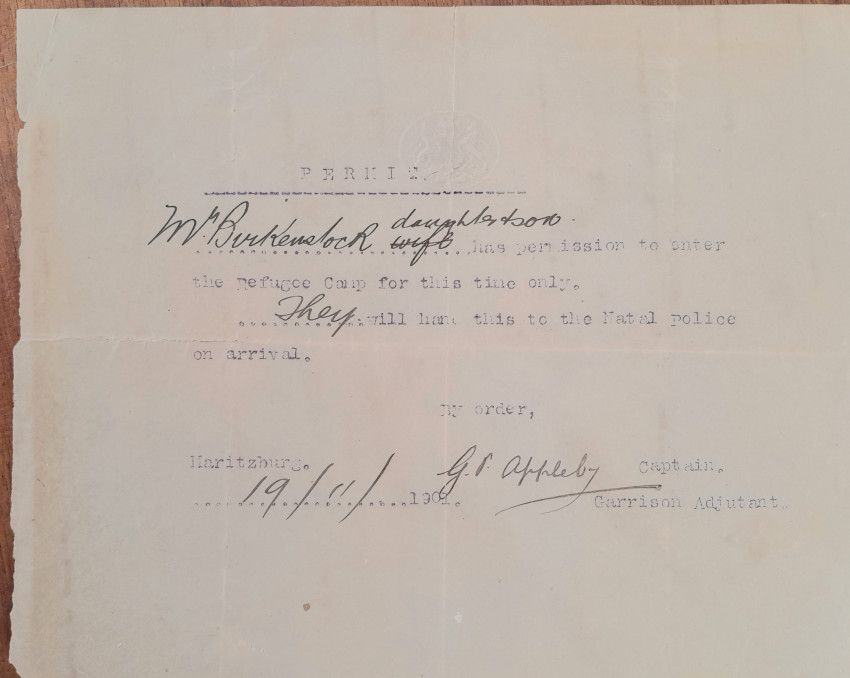 PERMIT.
daughter & son.
Mr. Birkenstock wife has permission to enter
the Refugee Camp for this time only.
They will hand this to the Natal police
on arrival.
By order,
Maritzburg. G. P. Appleby Captain.
19/11/1901. Garrison Adjutant.